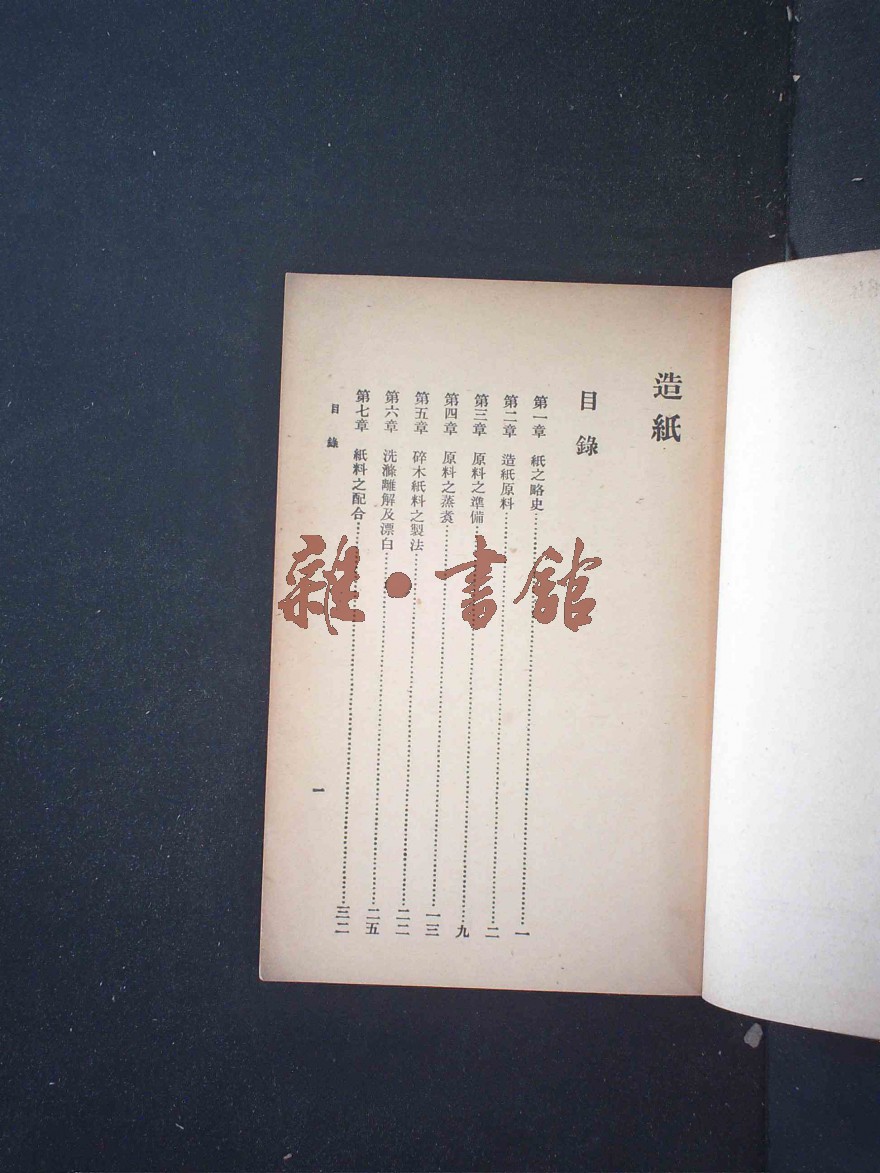 造紙
目錄
第一章 紙之略史 一
第二章 造紙原料 二
第三章 原料之準備 九
第四章 原料之蒸煮 一三
第五章 碎木紙料之製法 二二
第六章 洗滌離解及漂白 二五
第七章 紙料之配合 三二
目錄 一
雜·書館